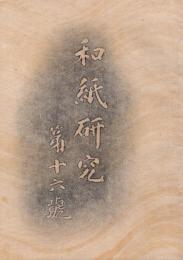 和紙研究
第十六號